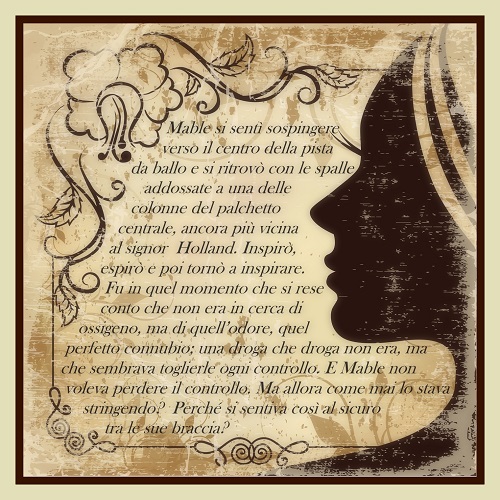 Mable si sentì sospingere
verso il centro della pista
da ballo e si ritrovò con le spalle
addossate a una delle
colonne del palchetto
centrale, ancora più vicina
al signor Holland. Inspirò,
espirò e poi tornò a inspirare.
Fu in quel momento che si rese
conto che non era in cerca di
ossigeno, ma di quell'odore, quel
perfetto connubio; una droga che droga non era, ma
che sembrava toglierle ogni controllo. E Mable non
voleva perdere il controllo. Ma allora come mai lo stava
stringendo? Perché si sentiva così al sicuro
tra le sue braccia?